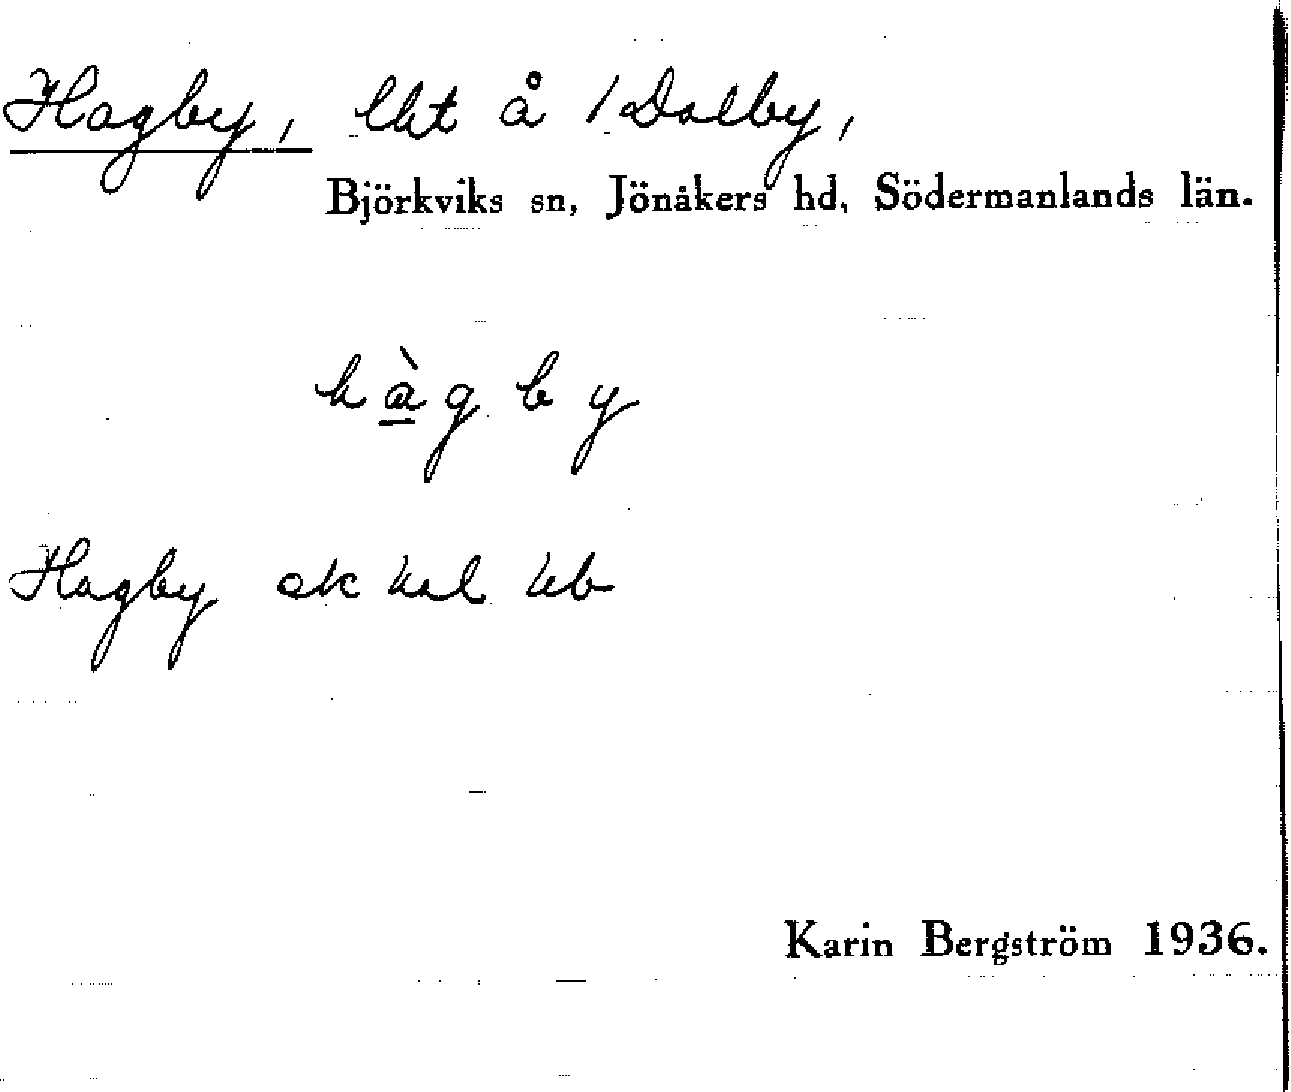 Hagby, lht å /Dalby,
Björkviks sn, Jönåkers hd, Södermanlands län.
hàgby
Hagby ek kal
Karin Bergström 1936.